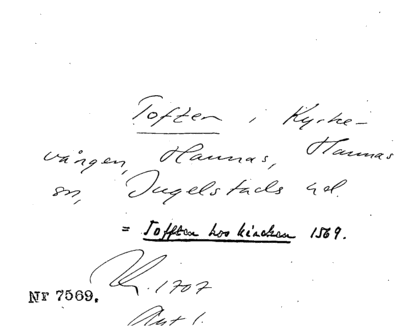 Toften i Kyrke-
vången, Hannas, Hannas
sn, Ingelstads hd.
= Tofften hos kirchen 1569.
1707
Nr 7569.
Akt 1.